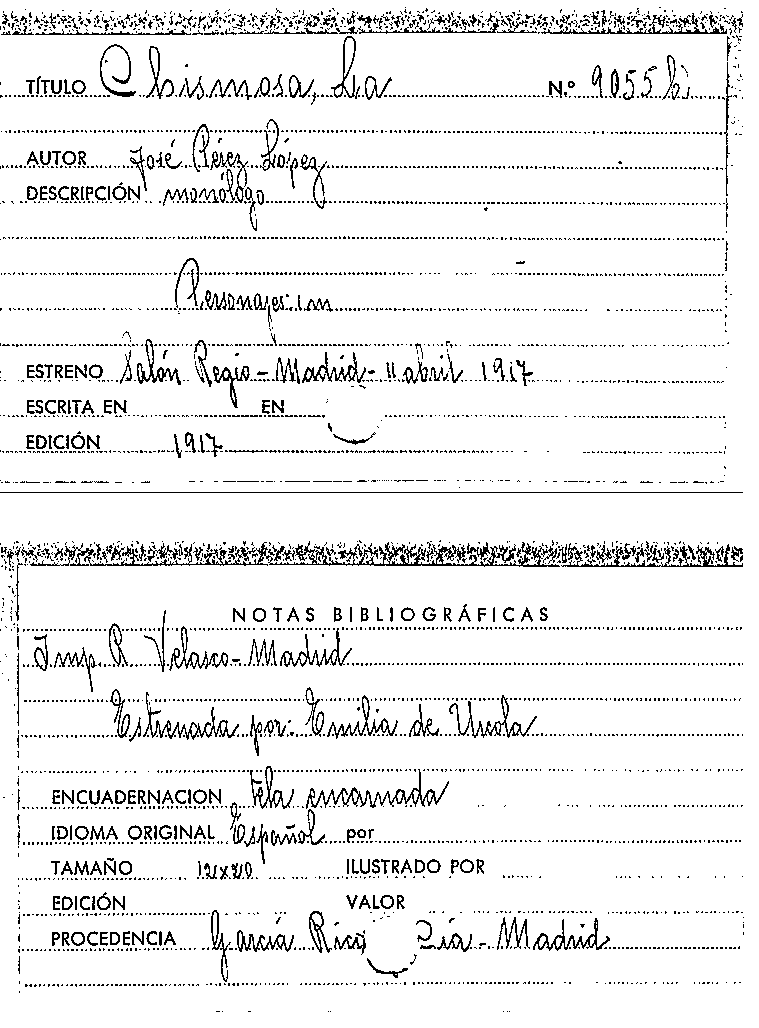 TÍTULO Chismosa, La N.º 9055 b)
AUTOR José Pérez López
DESCRIPCIÓN monólogo
Personajes: un
ESTRENO Salón Regio - Madrid - 11 abril 1917
ESCRITA EN EN
EDICIÓN 1917
NOTAS BIBLIOGRÁFICAS
Imp. R. Velasco - Madrid
Estrenada por: Emilia de
ENCUADERNACION tela encarnada
IDIOMA ORIGINAL Español por
TAMAÑO ILUSTRADO POR
EDICIÓN VALOR
PROCEDENCIA García Rico Cía - Madrid